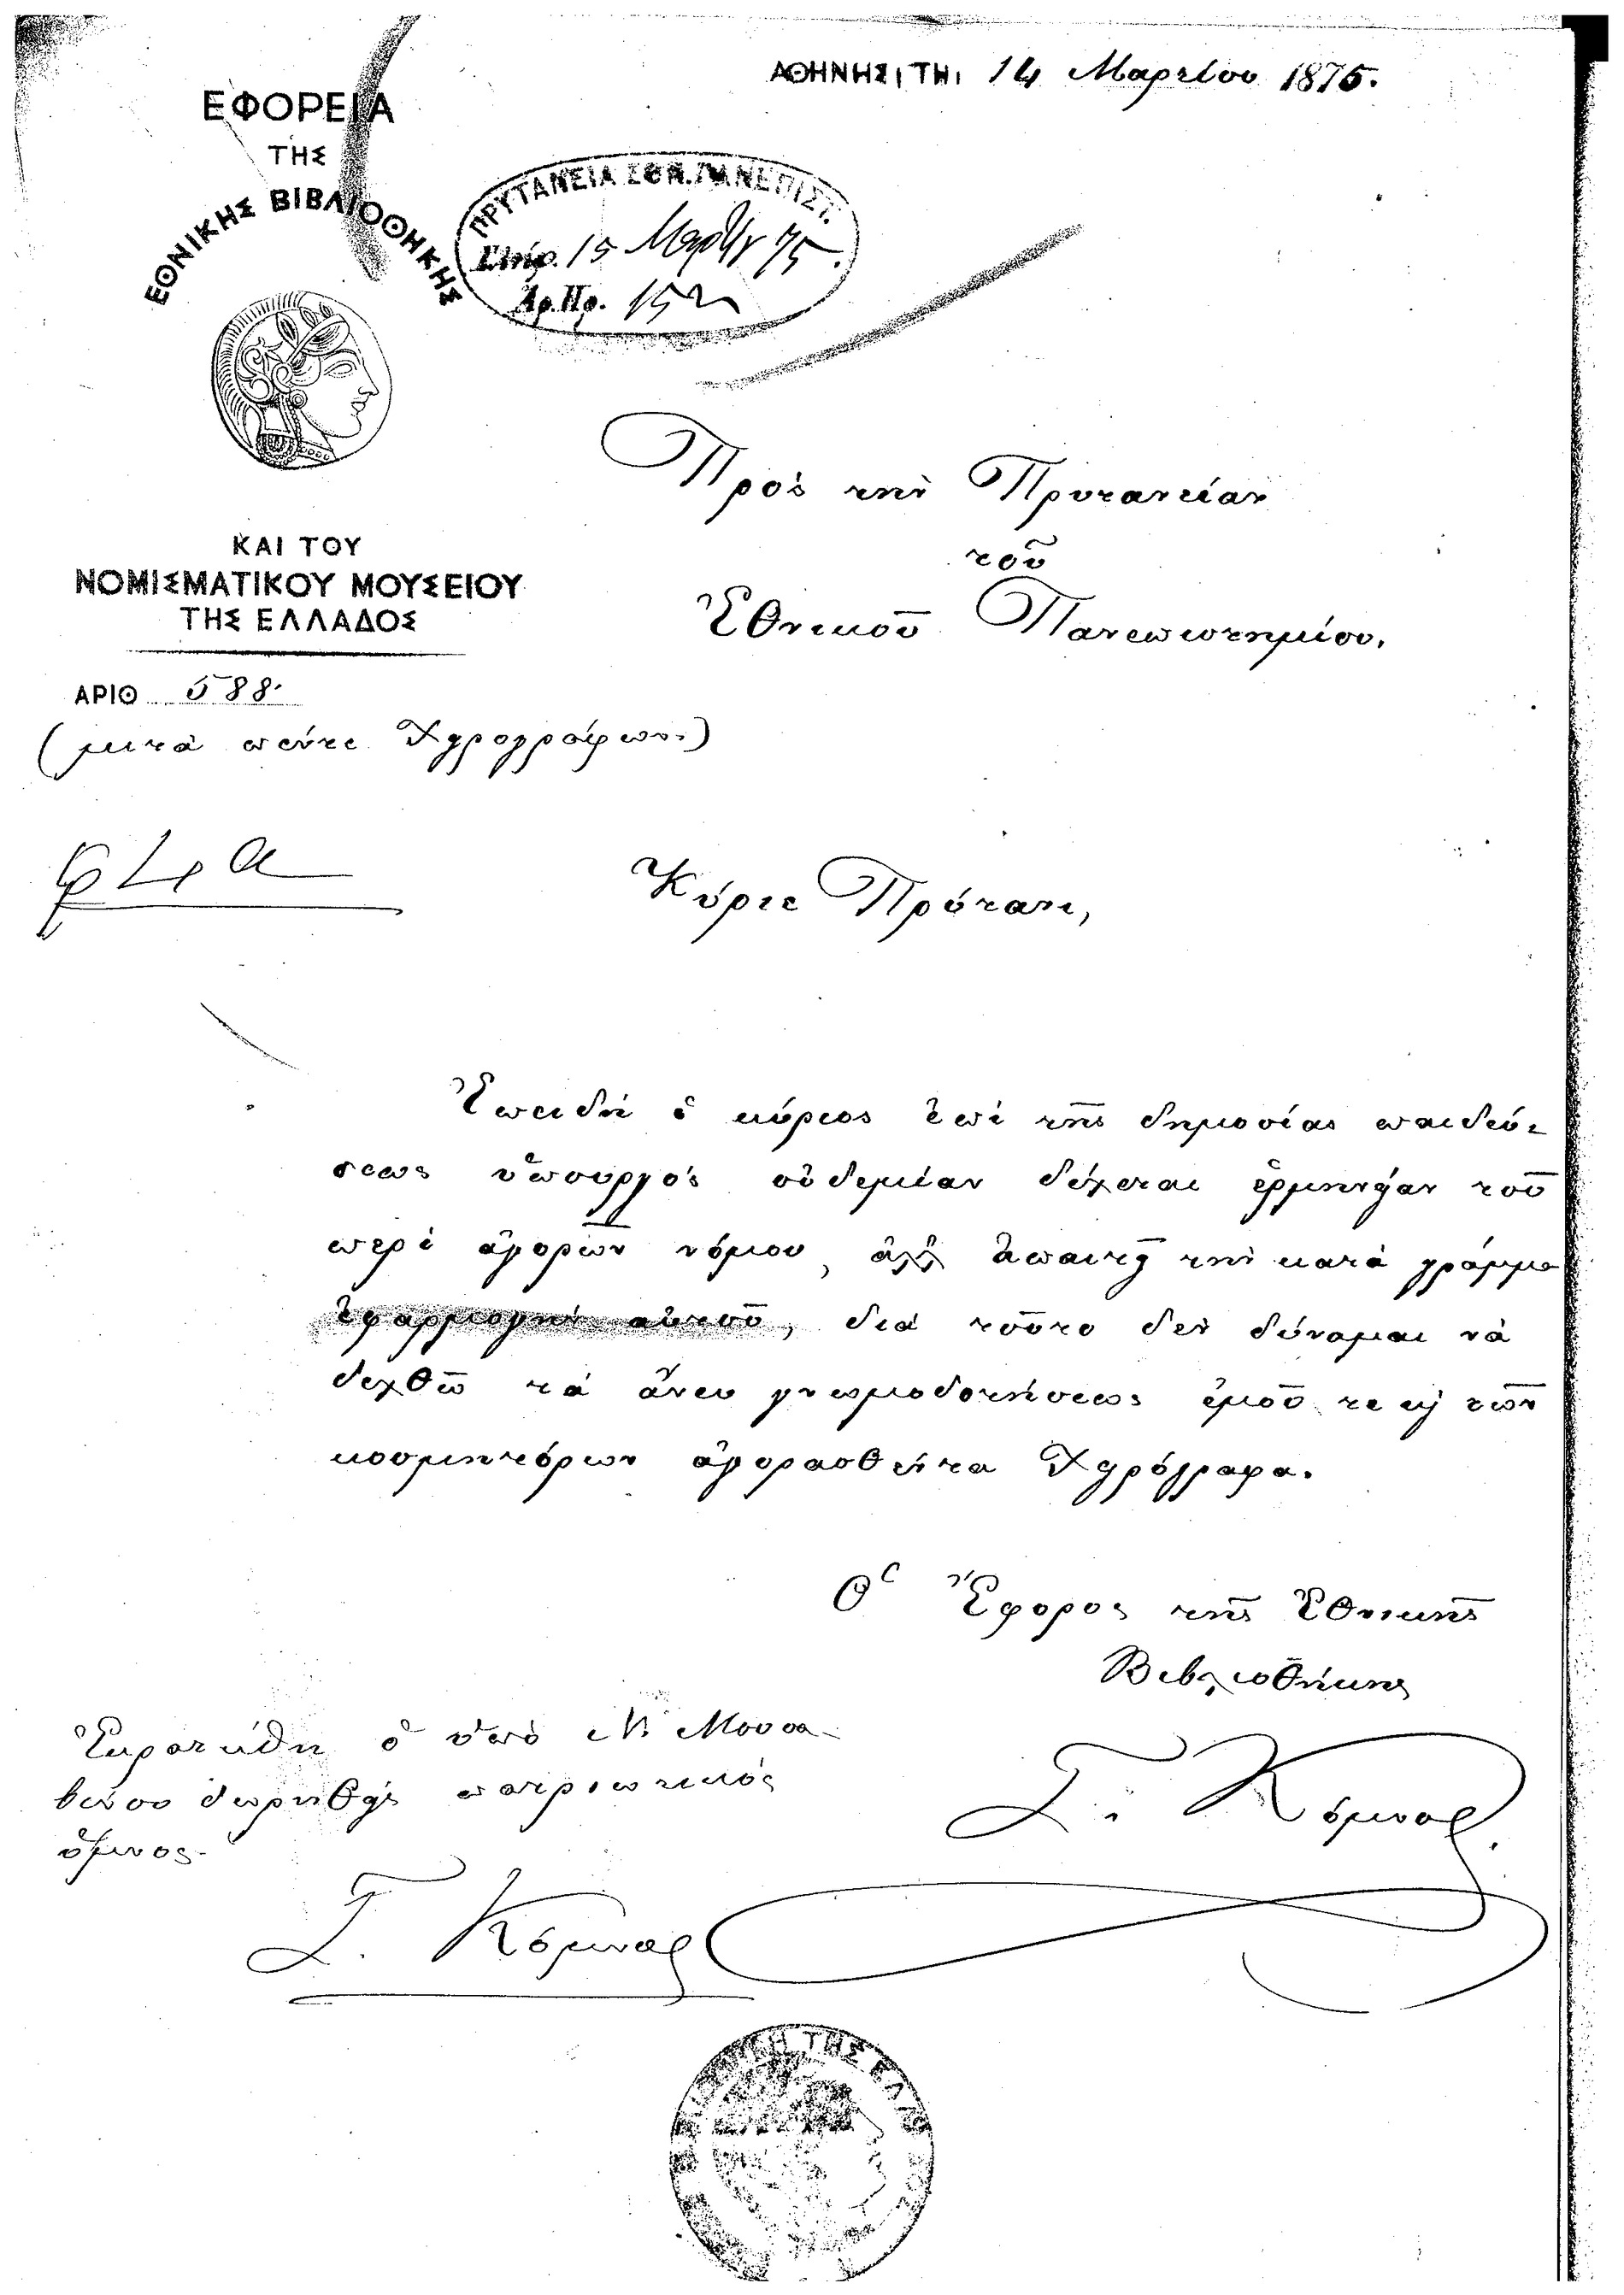 ΑΘΗΝΗΣΙ, ΤΗ, 14 Μαρτίου 1875.
ΕΦΟΡΕΙΑ
ΤΗΣ
ΕΘΝΙΚΗΣ ΒΙΒΛΙΟΘΗΚΗΣ
ΚΑΙ ΤΟΥ
ΝΟΜΙΣΜΑΤΙΚΟΥ ΜΟΥΣΕΙΟΥ
ΤΗΣ ΕΛΛΑΔΟΣ
ΑΡΙΘ. 588.
(μετὰ πέντε Χειρογράφων.)
ΠΡΥΤΑΝΕΙΑ ΕΘΝ. ΠΑΝΕΠΙΣΤ.
15 Μαρτίου 75.
Ἀρ. Πρ. 152
Πρὸς τὴν Πρυτανείαν
τοῦ
Ἐθνικοῦ Πανεπιστημίου.
Κύριε Πρύτανι,
Ἐπειδὴ ὁ κύριος ἐπὶ τῆς δημοσίας παιδεύ-
σεως ὑπουργὸς οὐδεμίαν δέχεται ἑρμηνείαν τοῦ
περὶ ἀγορῶν νόμου, ἀλλ' ἀπαιτεῖ τὴν κατὰ γράμμα
ἐφαρμογὴν αὐτοῦ, διὰ τοῦτο δὲν δύναμαι νὰ
δεχθῶ τὰ ἄνευ γνωμοδοτήσεως ἐμοῦ τε καὶ τῶν
κοσμητόρων ἀγορασθέντα Χειρόγραφα.
Ὁ Ἔφορος τῆς Ἐθνικῆς
Βιβλιοθήκης
Ἐκρατήθη ὁ ὑπὸ Ν. Μουσα-
δωρηθεὶς πατριωτικὸς
ὕμνος.